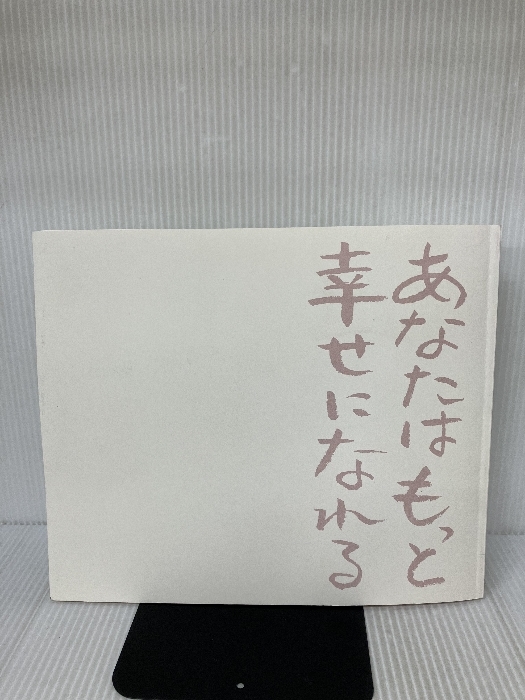 あなたはもっと
幸せになれる